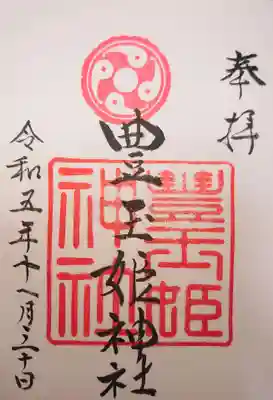 奉拝
豊玉姫神社
令和五年十一月二十日
豐玉姫
神社